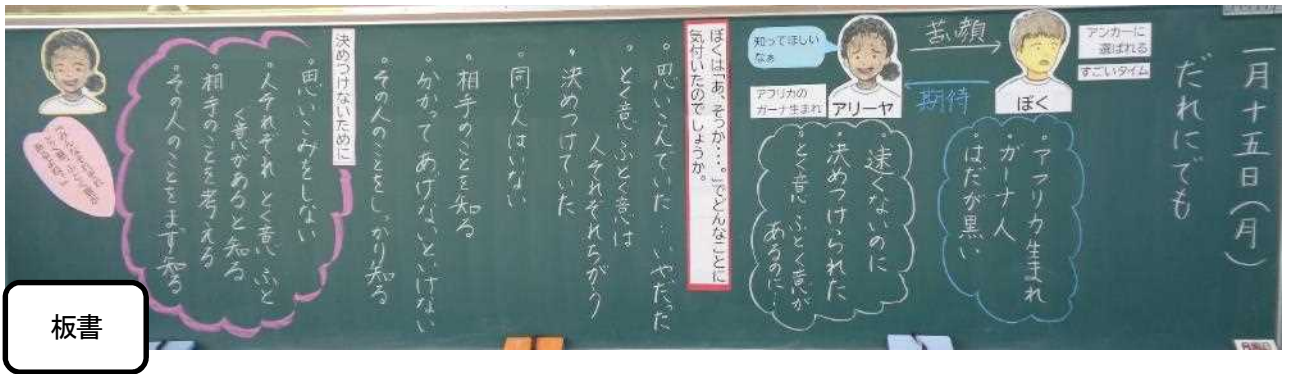 一月十五日(月)
だれにでも
アンカーに
選ばれる
すごいタイム
ぼく
苦い顔
期待
アリーヤ
知ってほしい
なぁ
アフリカの
ガーナ生まれ
・アフリカ生まれ
・ガーナ人
・はだが黒い
・速くないのに
・決めつけられた
・とく意 ふとく意が
あるのに…
ぼくは「あ、そっか…。」でどんなことに
気付いたのでしょうか。
・思いこんでいた…いやだった
・とく意 ふとく意は
人それぞれちがう
・決めつけていた
・同じ人はいない
・相手のことを知る
・分かってあげないといけない
・その人のことをしっかり知る
決めつけないために
・思いこみをしない
・人それぞれ とく意 ふと
く意があると知る
・相手のことを考える
・その人のことをまず知る
板書
月曜日